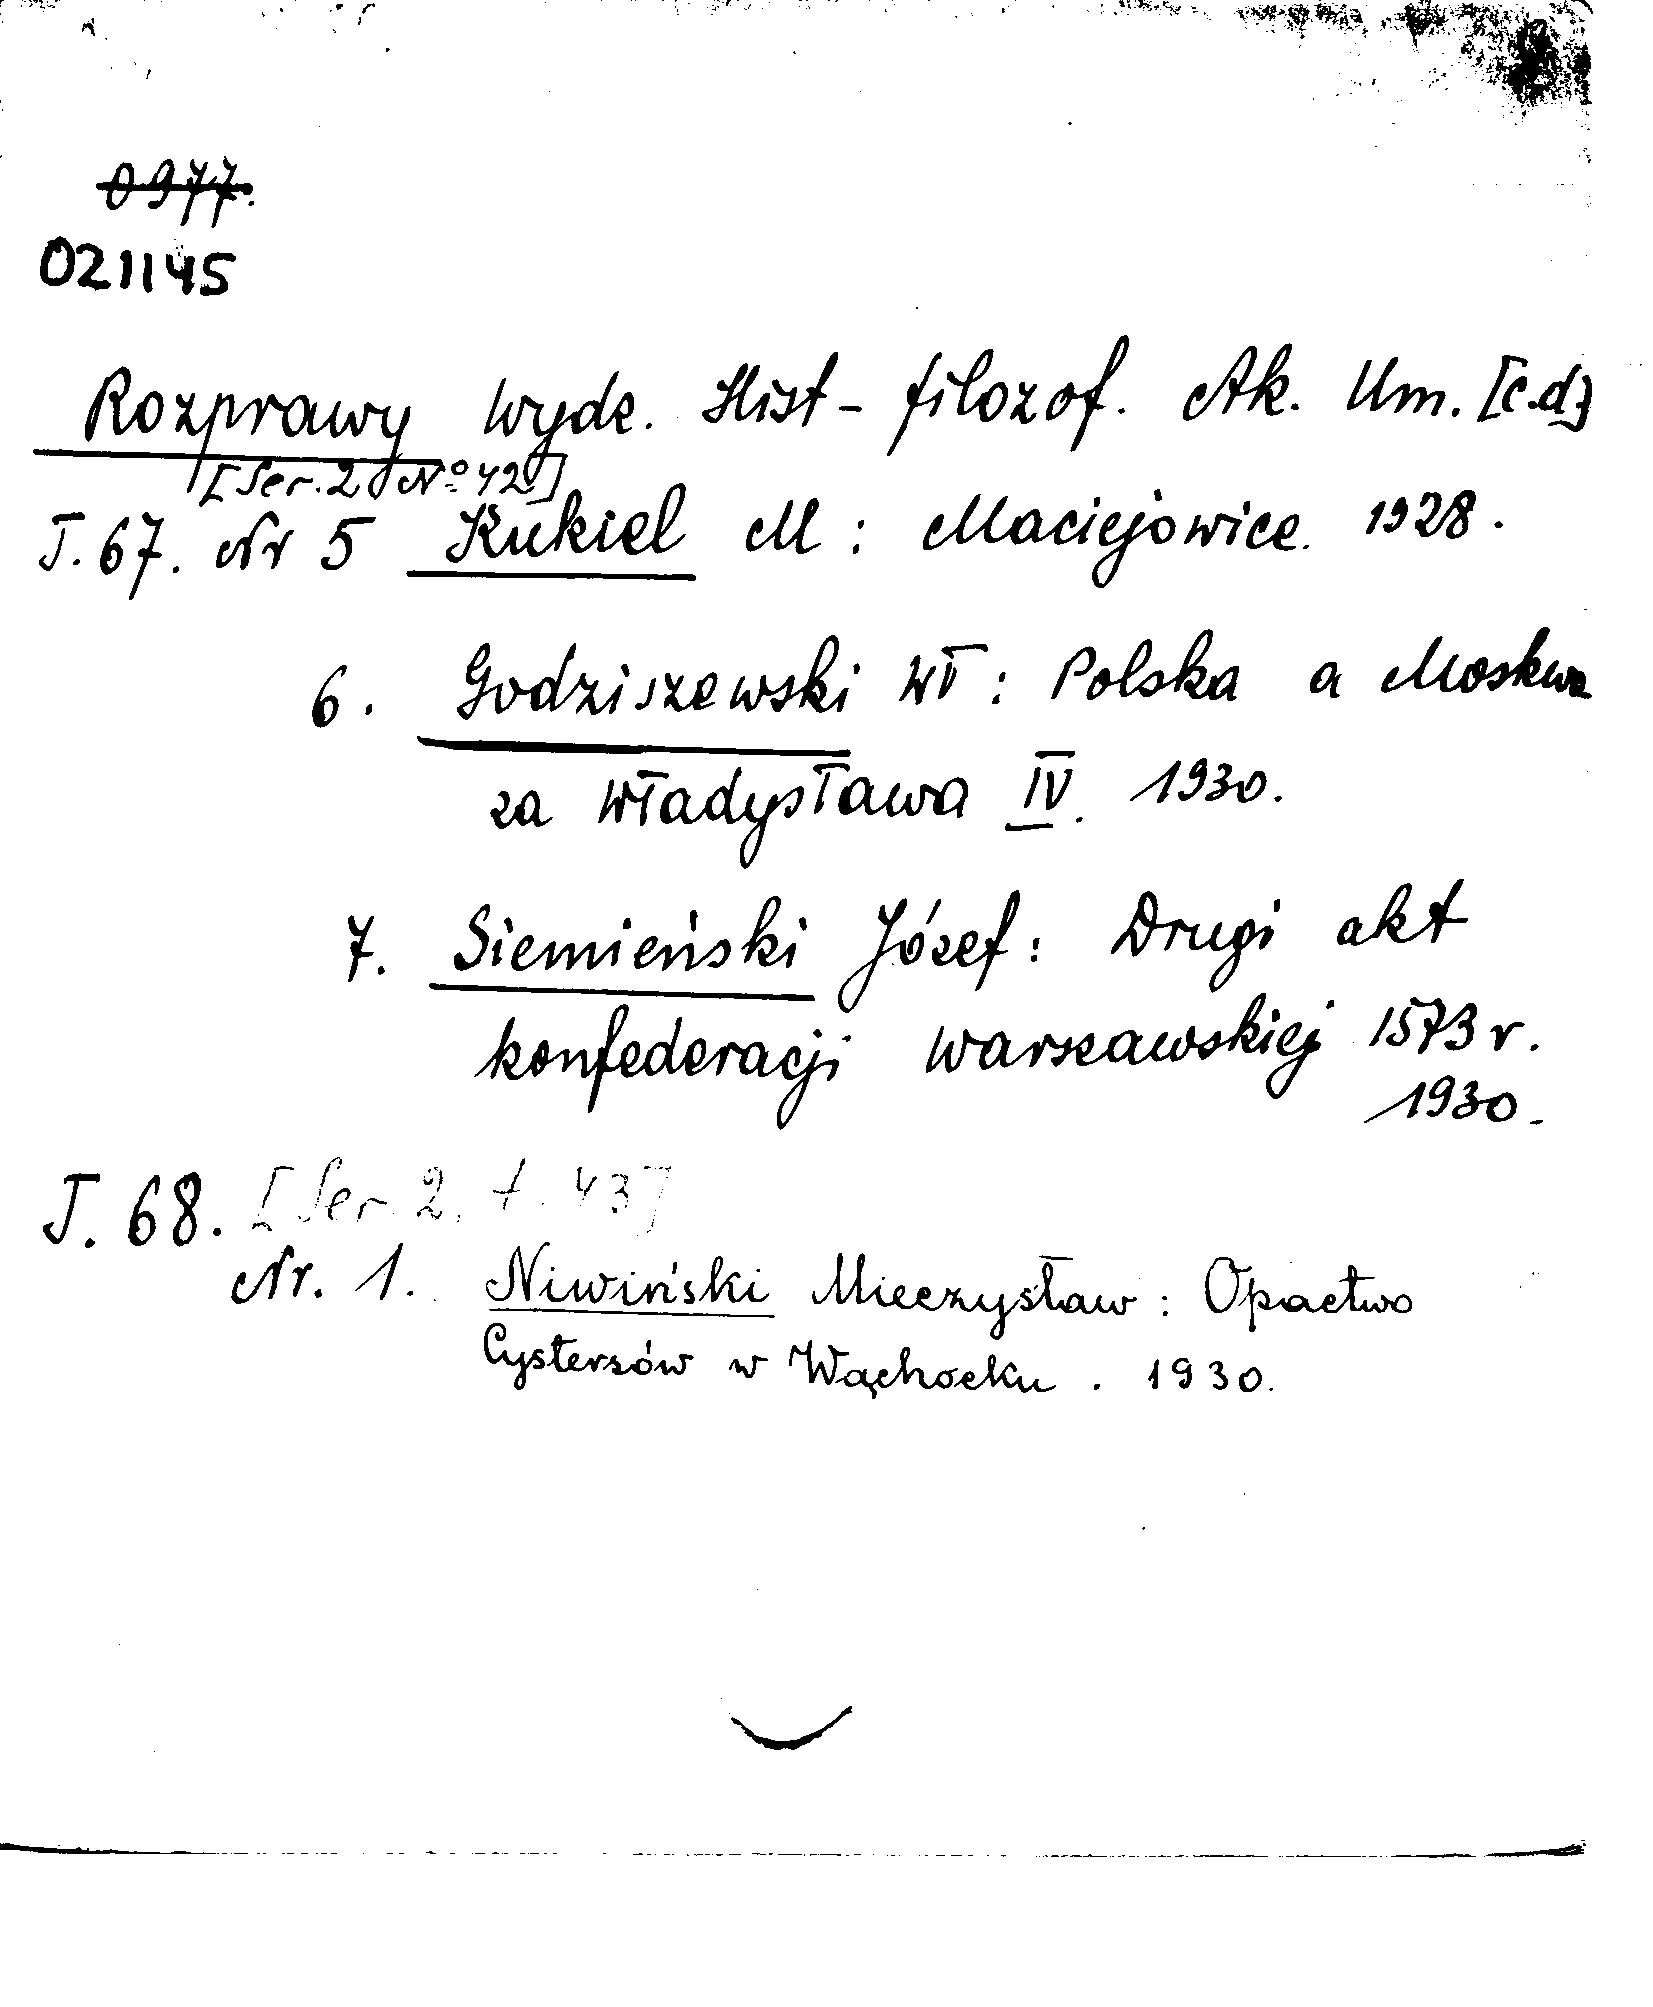 0977.
021145
Rozprawy Wydz. Hist-filozof. Ak. Um. [c.d.]
[Ser. 2 No 42]
T. 67. Nr 5 Kukiel M : Maciejowice. 1928.
6. Godziszewski Wł : Polska a Moskwa
za Władysława IV. 1930.
7. Siemieński Józef : Drugi akt
konfederacji warszawskiej 1573 r.
1930.
T. 68. [Ser. 2. t. 43]
Nr. 1. Niwiński Mieczysław : Opactwo
Cystersów w Wąchocku . 1930.